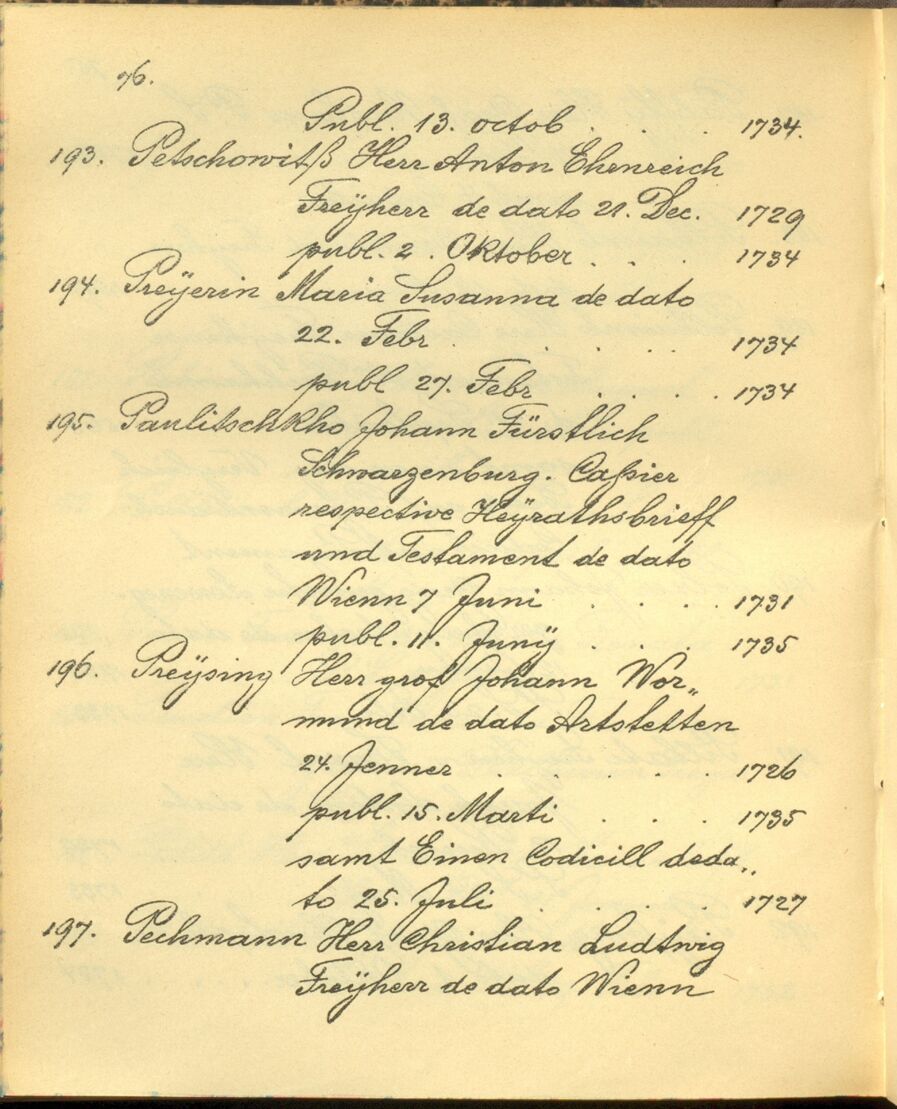 76.
Publ. 13. octob . . . 1734.
193. Petschowitß Herr Anton Ehrnreich
Freÿherr de dato 21. Dec. 1729
publ. 2. Oktober . . . 1734
194. Preÿerin Maria Susanna de dato
22. Febr . . . . . 1734
publ 27. Febr . . . . 1734
195. Paulitschkho Johann Fürstlich
Schwarzenburg. Caßier
respective Heÿrathsbrieff
und Testament de dato
Wienn 7 Juni . . . . 1731
publ. 11. Junÿ . . . . 1735
196. Preÿsing Herr graf Johann Wor„
mund de dato Artstetten
24. Jenner . . . . . 1726
publ. 15. Marti . . . 1735
samt Einen Codicill deda„
to 25. Juli . . . . 1727
197. Pechmann Herr Christian Ludtwig
Freÿherr de dato Wienn